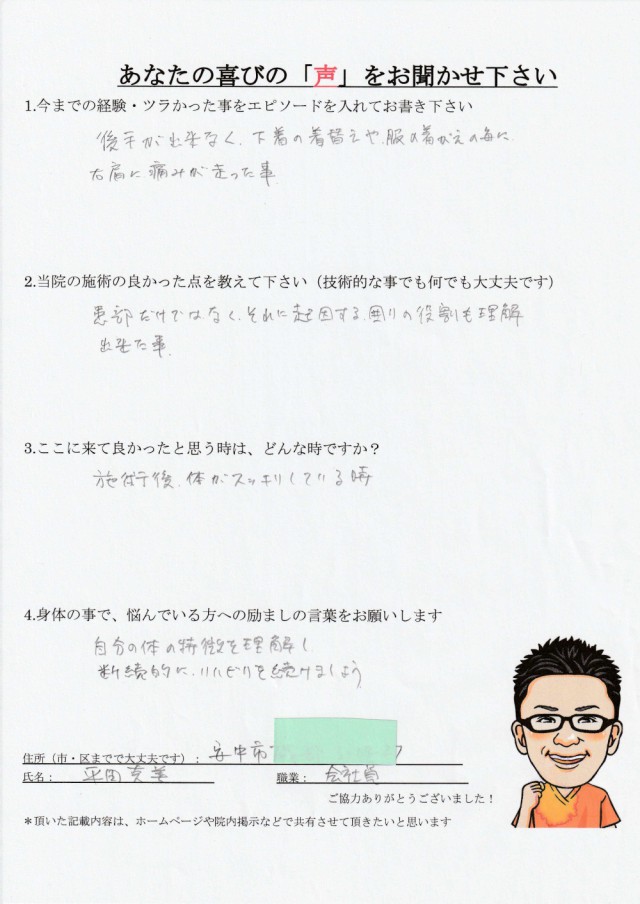 あなたの喜びの「声」をお聞かせ下さい
1.今までの経験・ツラかった事をエピソードを入れてお書き下さい
後手が出来なく、下着の着替えや、服の着がえの毎に、
右肩に痛みが走った事
2.当院の施術の良かった点を教えて下さい（技術的な事でも何でも大丈夫です）
患部だけではなく、それに起因する、囲りの役割も理解
出来た事、
3.ここに来て良かったと思う時は、どんな時ですか？
施術後、体がスッキリしている時
4.身体の事で、悩んでいる方への励ましの言葉をお願いします
自分の体の特徴を理解し
断続的に、リハビリを続けましょう
住所（市・区までで大丈夫です）： 安中市
氏名：
職業： 会社員
ご協力ありがとうございました！
＊頂いた記載内容は、ホームページや院内掲示などで共有させて頂きたいと思います